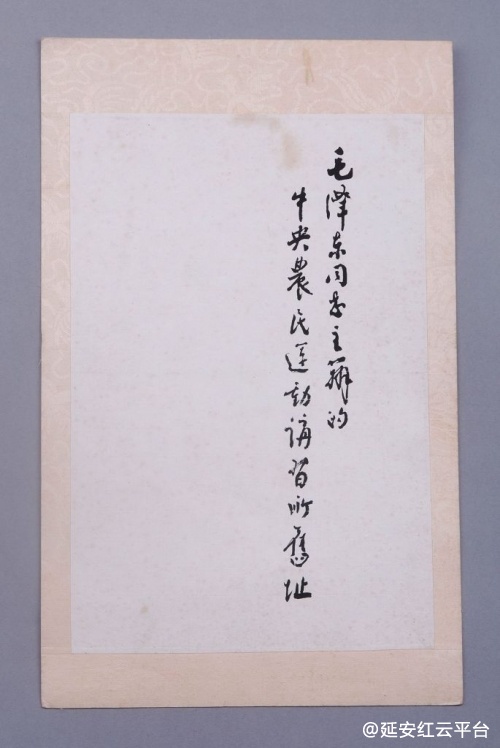 毛泽东同志主办的
中央農民运动講習所舊址
@延安红云平台